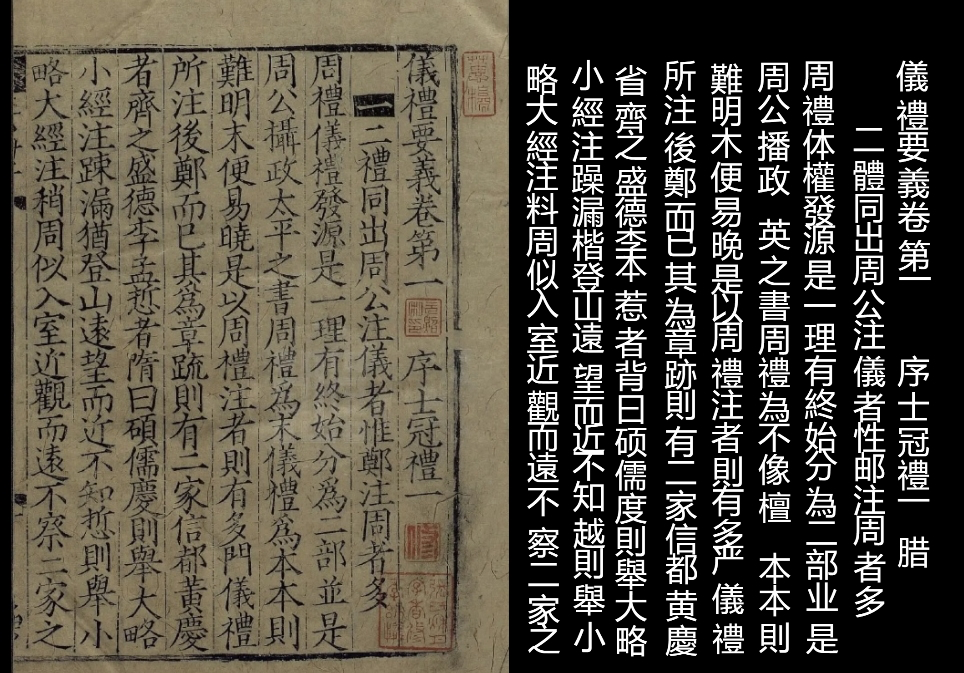 儀禮要義卷第一 序士冠禮一
一 二禮同出周公注儀者惟鄭注周者多
周禮儀禮發源是一理有終始分爲二部並是
周公攝政太平之書周禮爲末儀禮爲本本則
難明末便易曉是以周禮注者則有多門儀禮
所注後鄭而已其爲章疏則有二家信都黃慶
者齊之盛德李孟悊者隋曰碩儒慶則舉大略
小經注踈漏猶登山遠望而近不知悊則舉小
略大經注稍周似入室近觀而遠不察二家之
儀禮要義卷第一 序士冠禮一 腊
二體同出周公注儀者性邮注周者多
周禮体權發源是一理有終始分為二部业是
周公播政 英之書周禮為不像檀 本本則
難明木便易晚是以周禮注者則有多严儀禮
所注後鄭而已其為章跡則有二家信都黄慶
省齊之盛德李本惹者背曰硕儒度則舉大略
小經注躁漏楷登山遠望而近不知越則舉小
略大經注料周似入室近觀而遠不察二家之